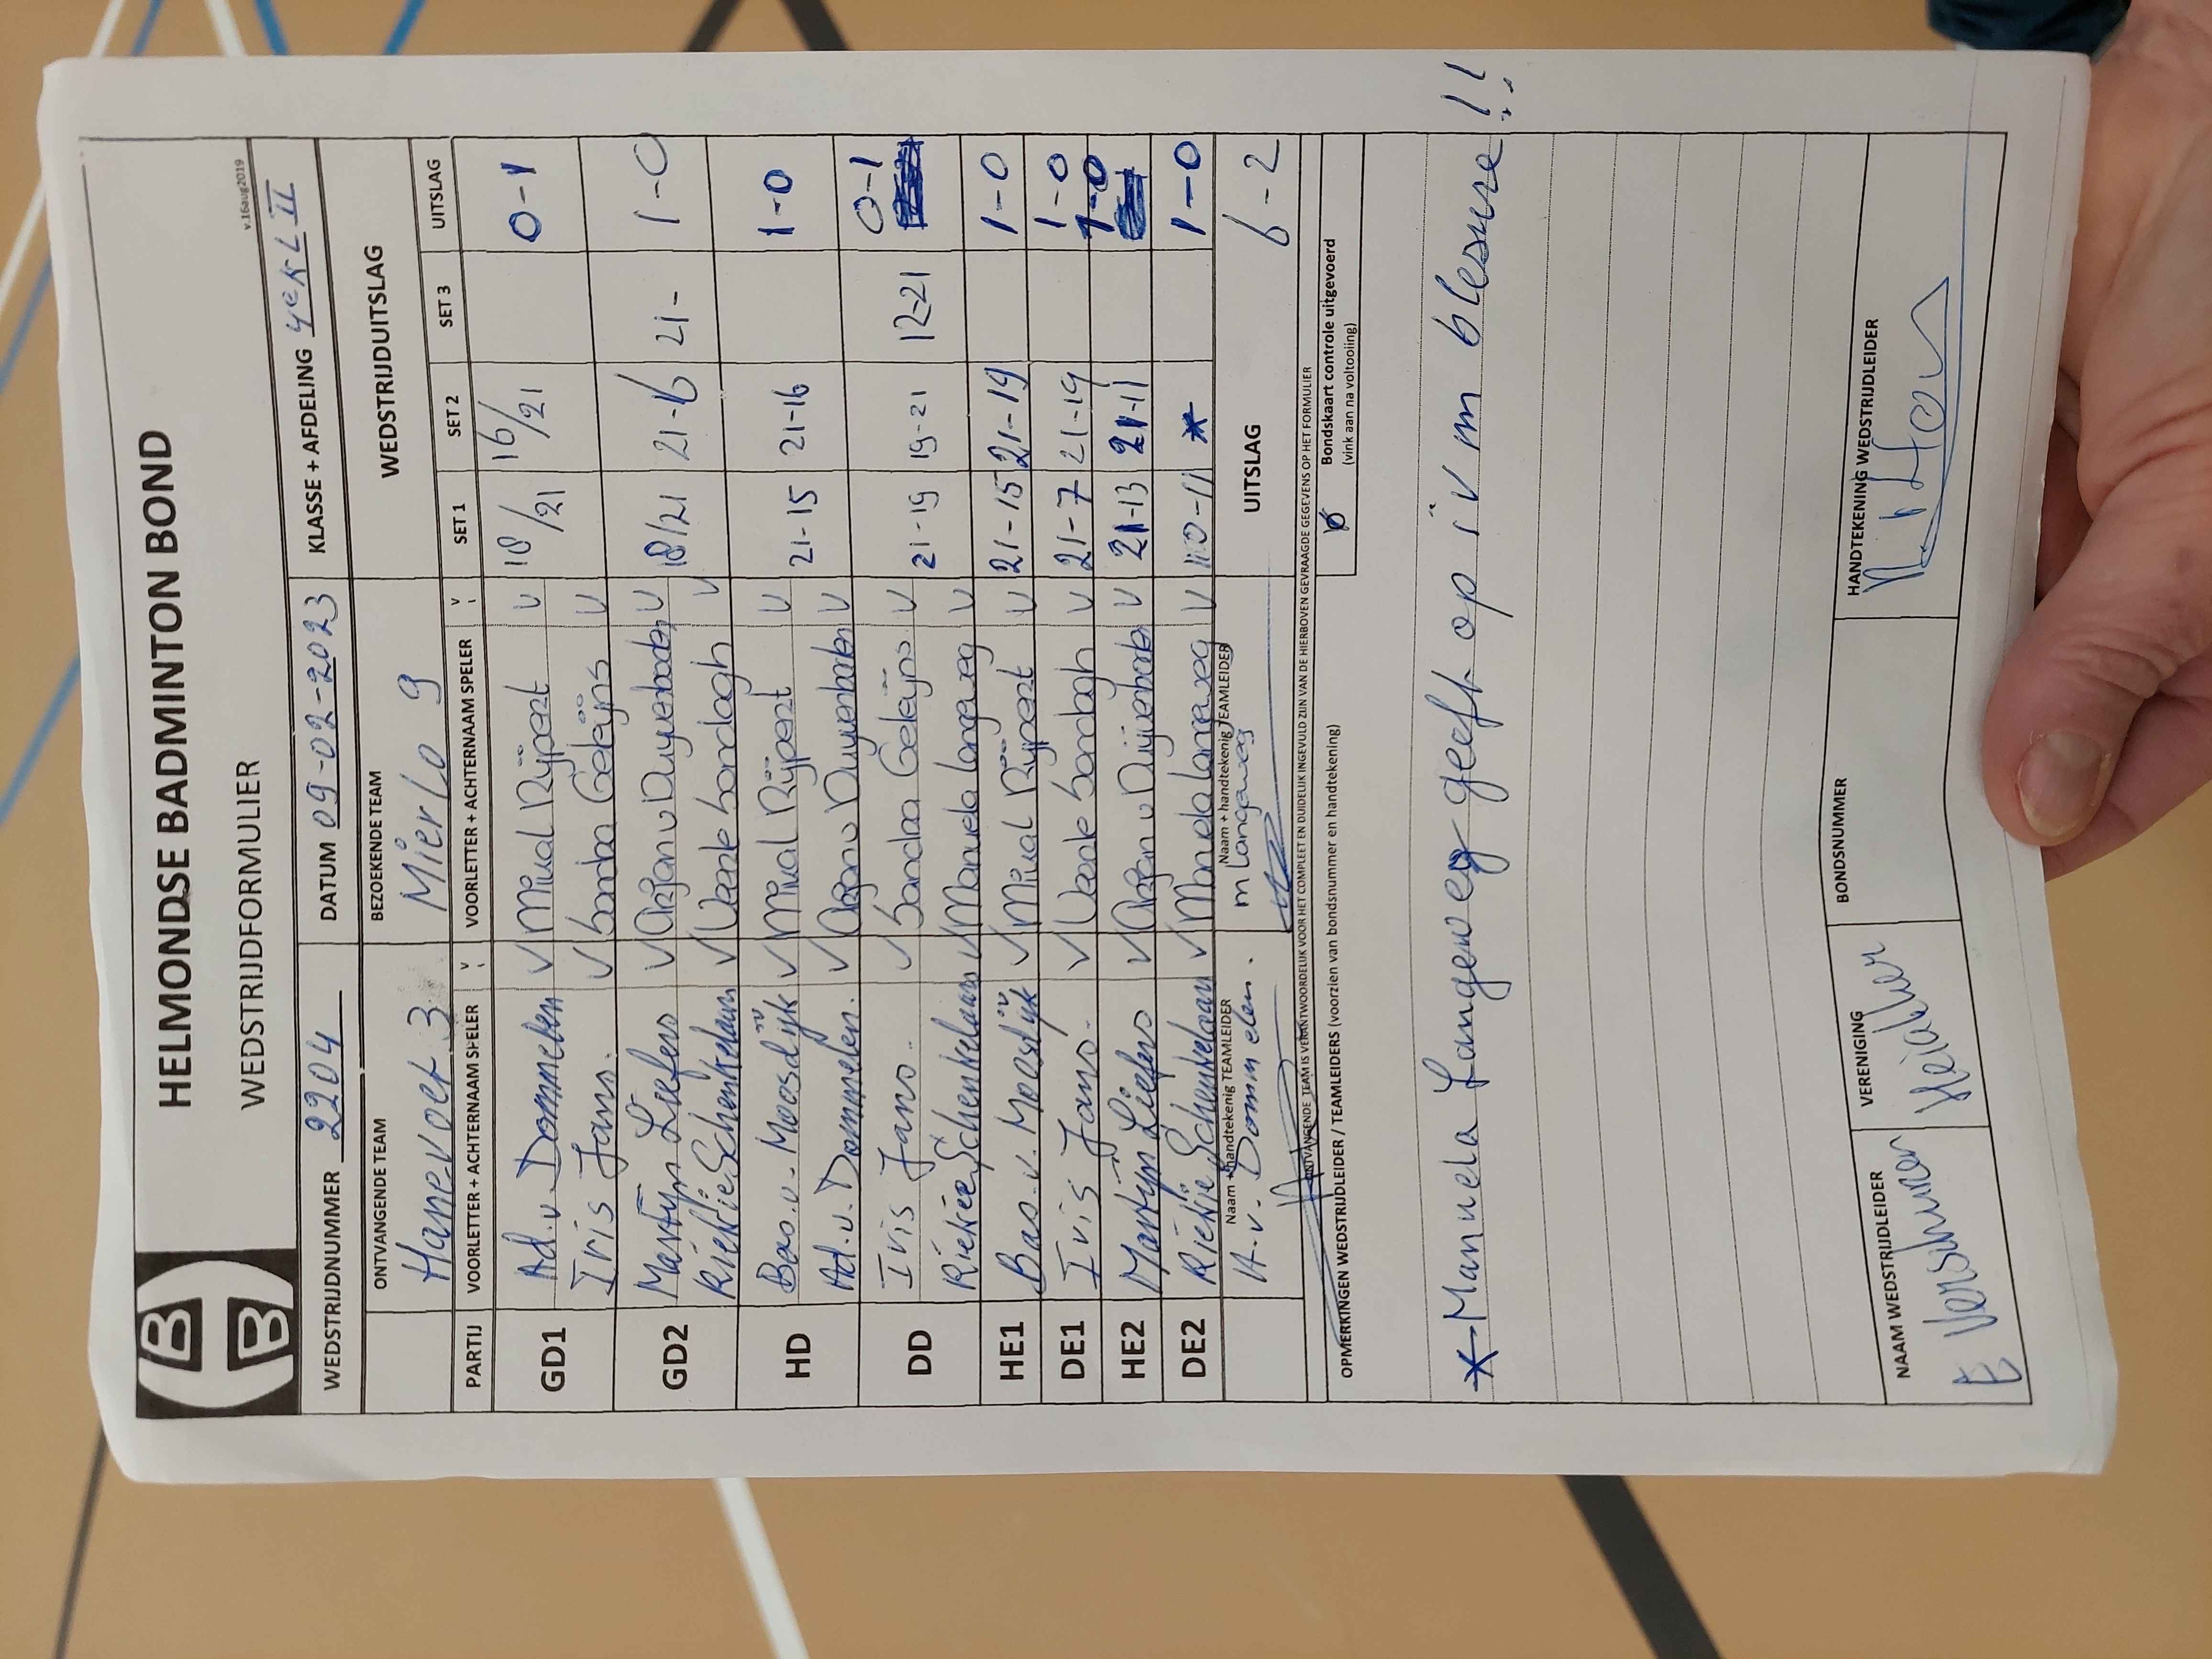 HELMONDSE BADMINTON BOND
WEDSTRIJDFORMULIER
v.16aug2019
WEDSTRIJDNUMMER 2204 DATUM 09-02-2023 KLASSE + AFDELING 4e KL II
ONTVANGENDE TEAM BEZOEKENDE TEAM WEDSTRIJDUITSLAG
Hanevoet 3 Mierlo 9
PARTIJ VOORLETTER + ACHTERNAAM SPELER V VOORLETTER + ACHTERNAAM SPELER V SET 1 SET 2 SET 3 UITSLAG
GD1 Ad.v Dommelen V Rijpert V 18/21 16/21 0-1
Iris Jans. V Sandra Geleijns V
GD2 Martijn Liefers V Arjan v Duijenboden V 18/21 21-6 21- 1-0
Riekie Schenkelaars V V
HD Bas.v. Moosdijk V Rijpert V 21-15 21-16 1-0
Ad.v. Dommelen. V Arjan v Duijenboden V
DD Iris Jans. V Sandra Geleijns V 21-19 19-21 12-21 0-1
Riekie Schenkelaars V Manuela Langeweg V
HE1 Bas.v. Moosdijk V Rijpert V 21-15 21-19 1-0
DE1 Iris Jans. V V 21-7 21-19 1-0
HE2 Martijn Liefers V Arjan v Duijenboden V 21-13 21-11 1-0
DE2 Riekie Schenkelaars V Manuela Langeweg V 11.0-11 * 1-0
Naam + handtekenig TEAMLEIDER Naam + handtekenig TEAMLEIDER UITSLAG 6-2
A.v. Dommelen. m Langeweg
ONTVANGENDE TEAM IS VERANTWOORDELIJK VOOR HET COMPLEET EN DUIDELIJK INGEVULD ZIJN VAN DE HIERBOVEN GEVRAAGDE GEGEVENS OP HET FORMULIER
OPMERKINGEN WEDSTRIJDLEIDER / TEAMLEIDERS (voorzien van bondsnummer en handtekening) Bondskaart controle uitgevoerd
(vink aan na voltooiing)
*-Manuela Langeweg geeft op ivm blessure!!
NAAM WEDSTRIJDLEIDER VERENIGING BONDSNUMMER HANDTEKENING WEDSTRIJDLEIDER
E Verschuren